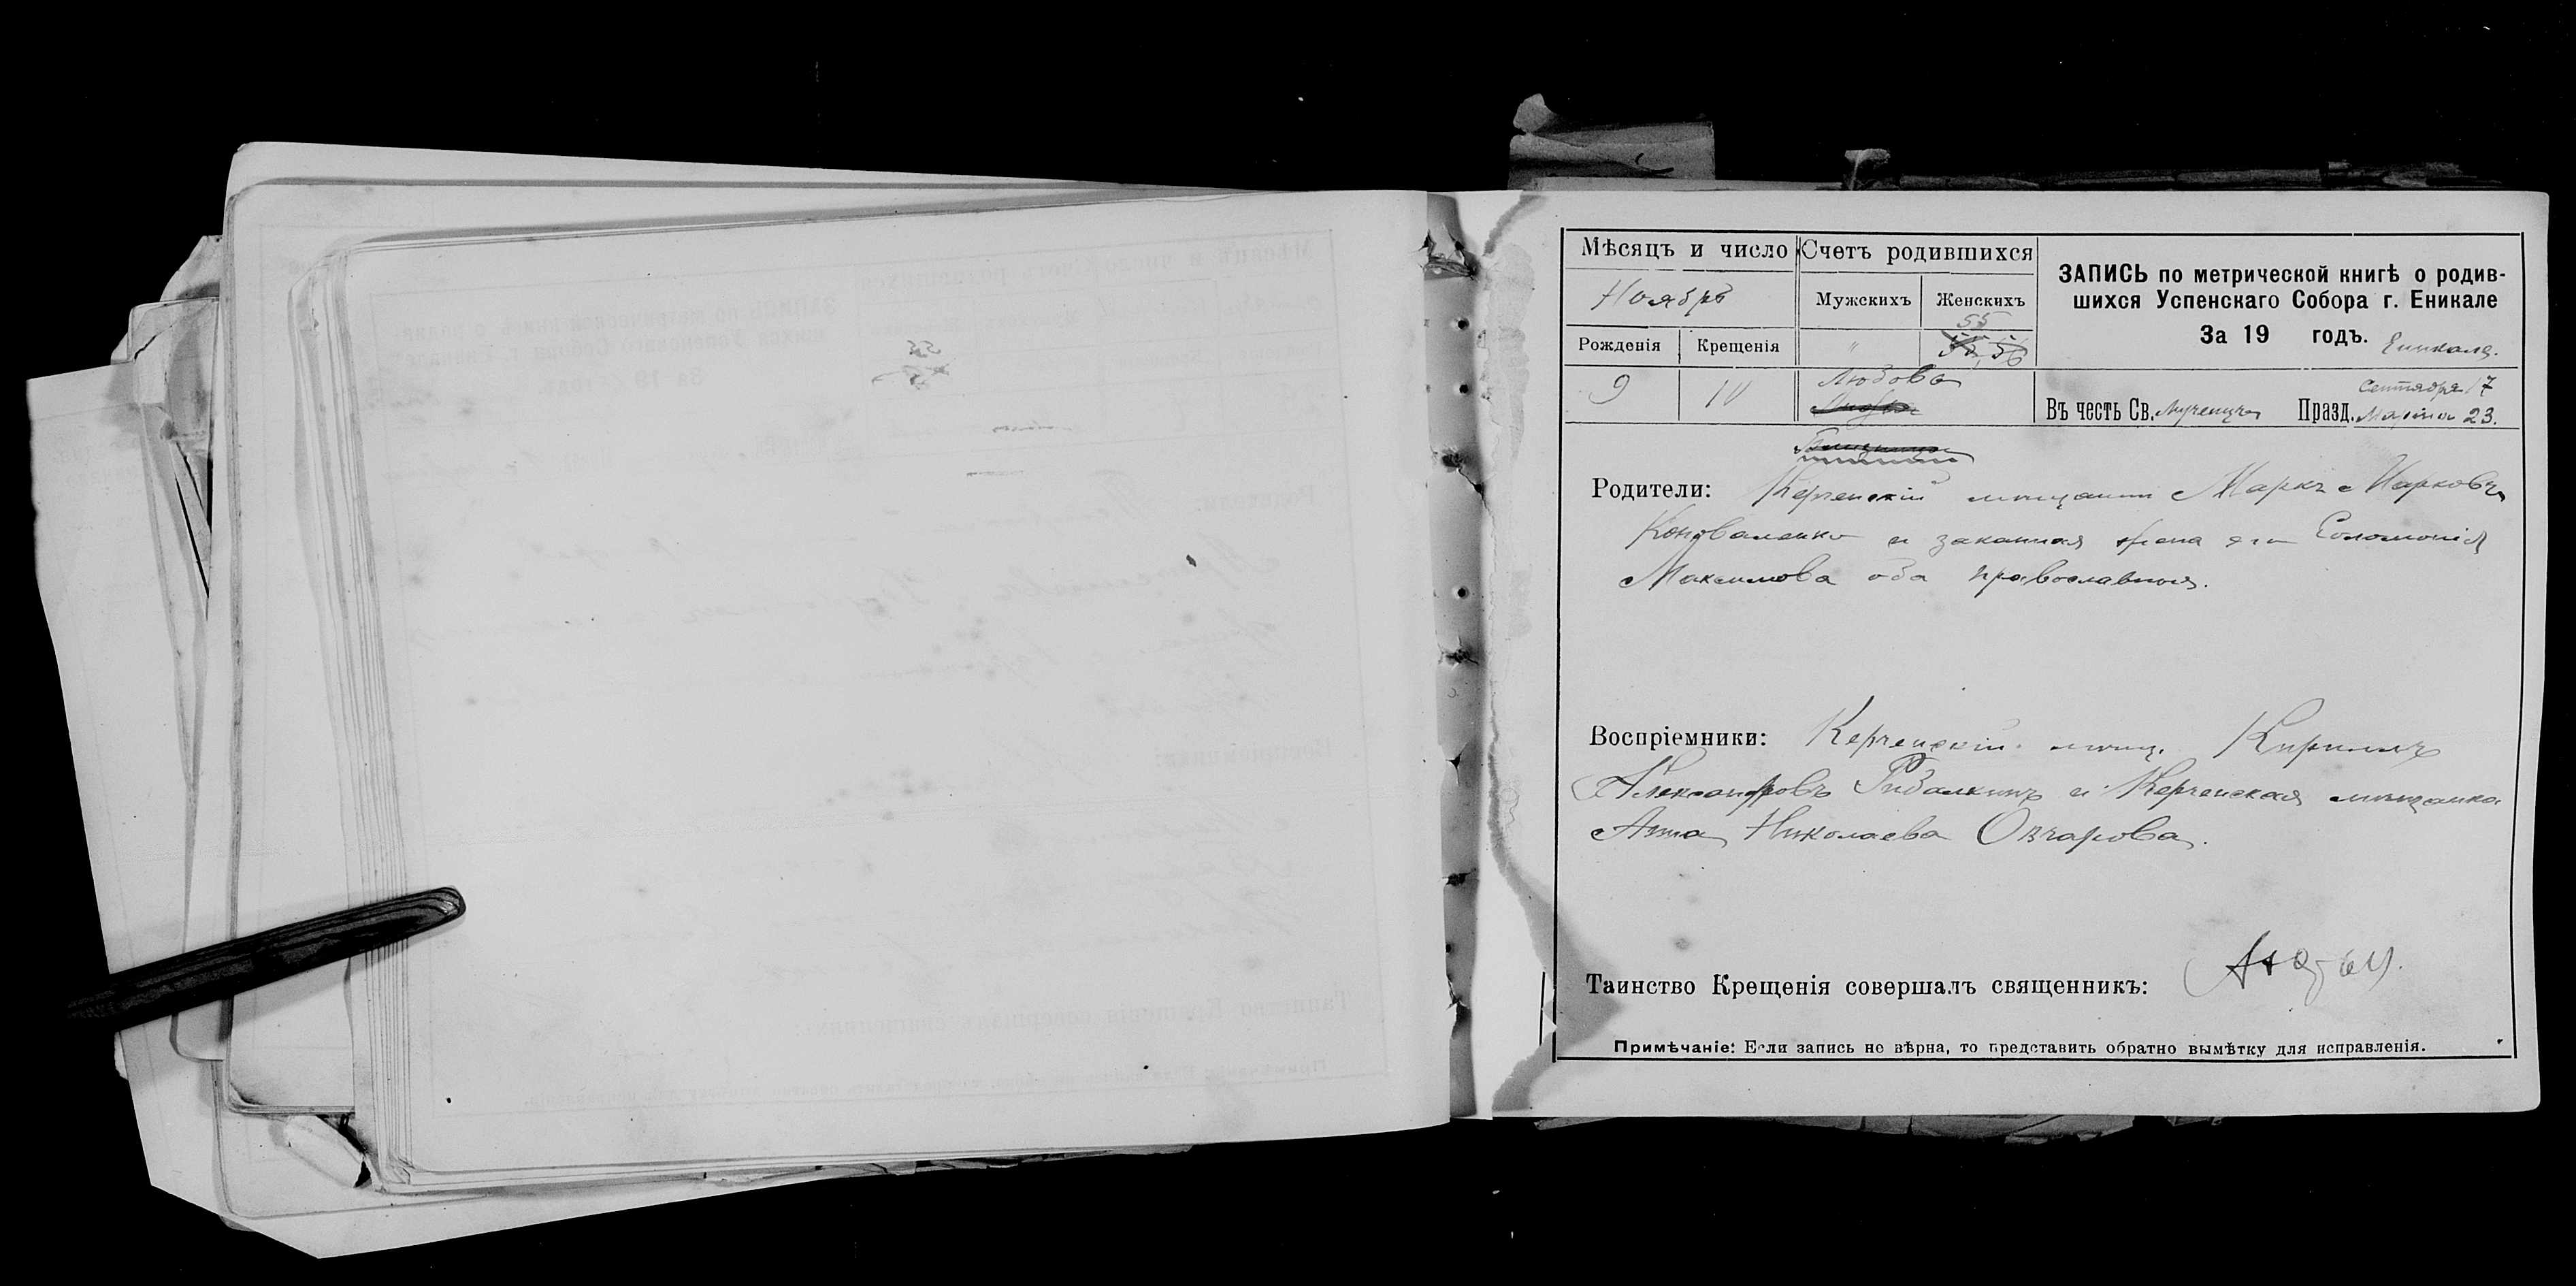 Мѣсяцъ и число
Счетъ родившихся
ЗАПИСЬ по метрической книгѣ о родив-
шихся Успенскаго Собора г. Еникале
За 19 годъ.
Еникале.
Ноябрь
Мужскихъ
Женскихъ
55
Рожденія
Крещенія
"
9
10
Любовь
Въ честь Св. Мученицы
Празд.
Сентября 17
23.
Родители: Керченскій мѣщанин Маркъ Марковъ
Коноваленко и законная жена его Соломонія
Максимова оба православные.
Воспріемники: Керченскій мѣщ. Кириллъ
Александровъ Рибалкинъ и Керченская мѣщанка
Анна Николаева Овчарова.
Таинство Крещенія совершалъ священникъ:
Примѣчаніе: Если запись не вѣрна, то представить обратно вымѣтку для исправленія.